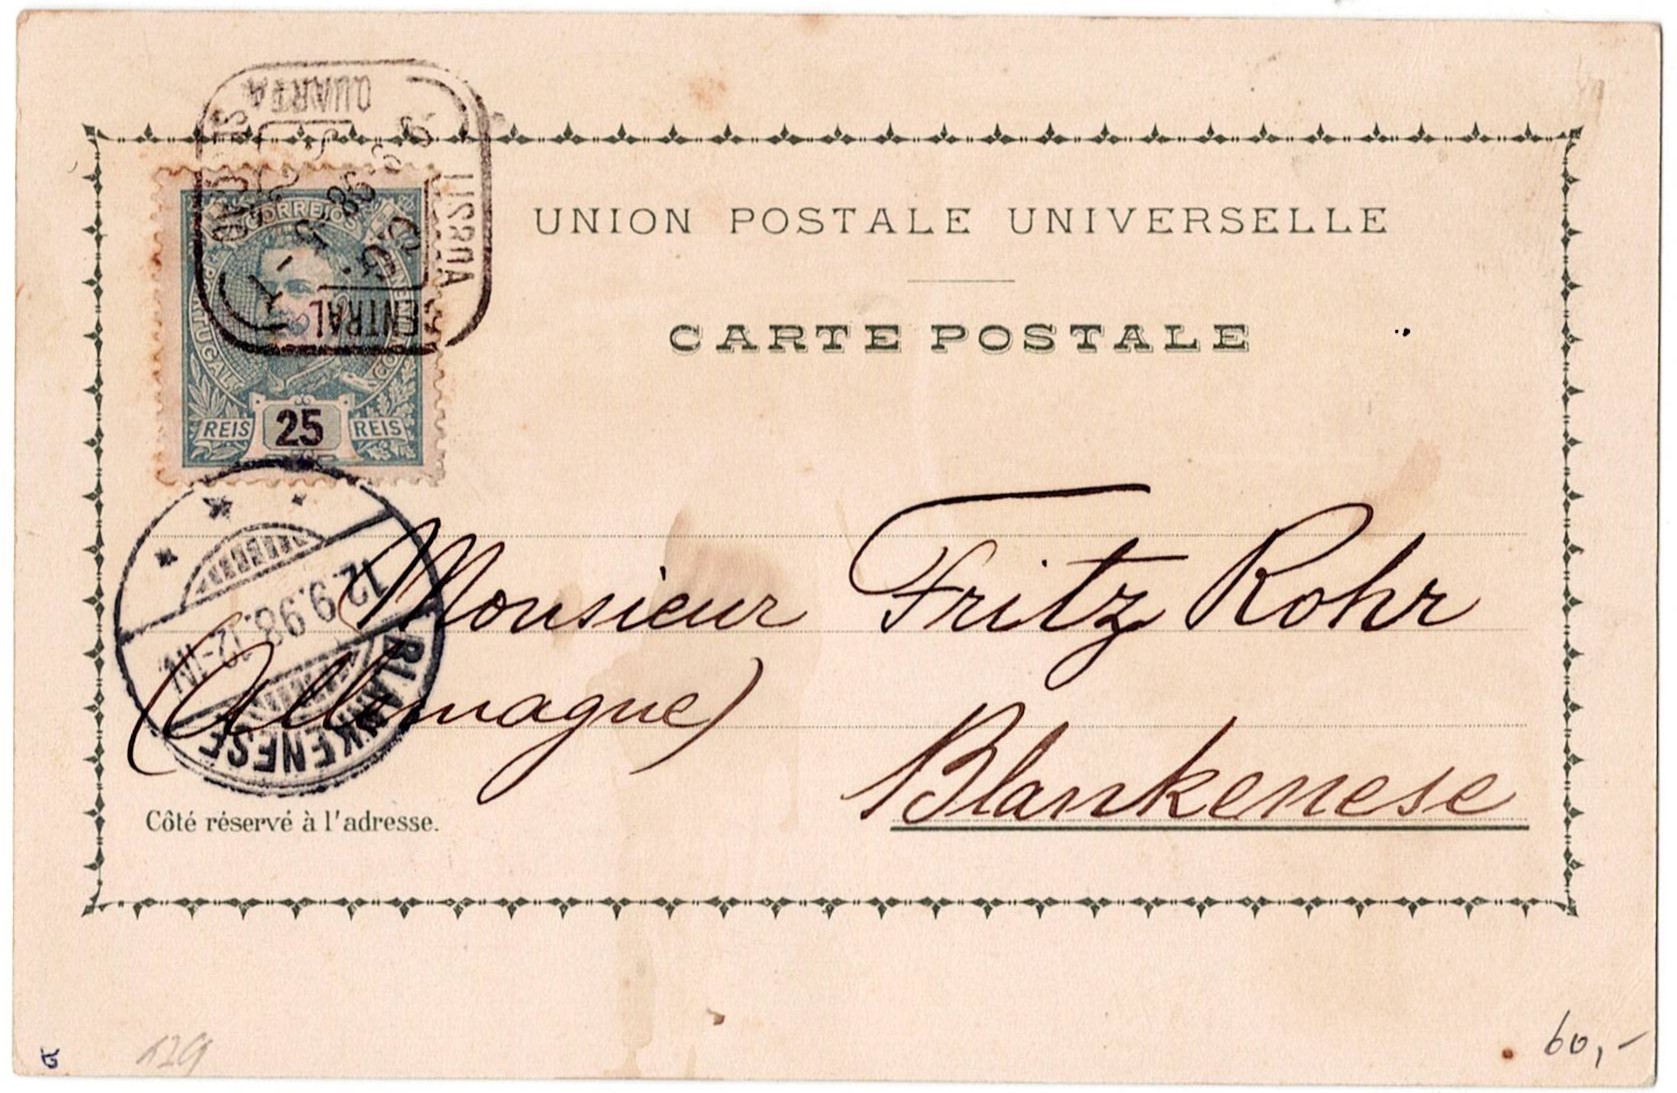 UNION POSTALE UNIVERSELLE
CARTE POSTALE
QUARTA
LISBOA
CENTRAL
CORREIOS
PORTUGAL
REIS 25 REIS
12.9.98.12-1N.
BLANKENESE
Monsieur Fritz Rohr
(Allemagne)
Blankenese
Côté réservé à l'adresse.
60,-